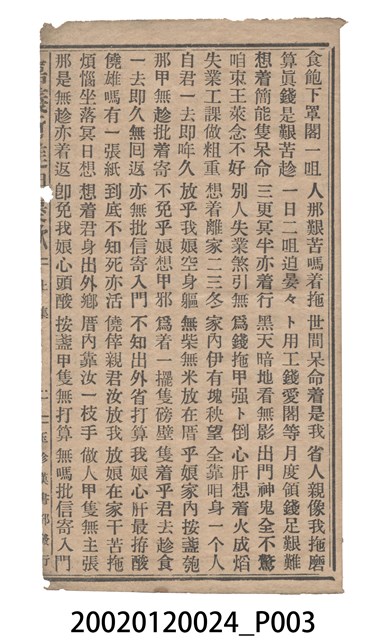 食飽下罩閣一咀　人那艱苦嗎着拖　世間呆命着是我　省人親像我拖磨
算眞錢是艱苦趁　一日二咀迫晏々　卜用工錢愛閣等　月度領錢足艱難
想着簡能隻呆命　三更冥半亦着行　黑天暗地看無影　出門神鬼全不驚
咱東王萊念不好　別人失業煞引無　爲錢拖甲强卜倒　心肝想着火成熖
失業工課做粗重　想着離家二三冬　家內伊有塊秧望　全靠咱身一个人
自君一去即年久　放乎我娘空身軀　無柴無米放在厝　乎娘家內按盞匏
那甲無趁批着寄　不免乎娘想甲邪　爲着一擺隻磅壁　隻着乎君去趁食
一去即久無囘返　亦無批信寄入門　不知出外省打算　我娘心肝最拵酸
僥雄嗎有一張紙　到底不知死亦活　僥倖親君汝放我　放娘在家干苦拖
煩惱坐落冥日想　想着君身出外鄉　厝內靠汝一枝手　做人甲隻無主張
那是無趁亦着返　卽免我娘心頭酸　按盞甲隻無打算　無嗎批信寄入門
上集　二　玉珍漢書部發行
20020120024_P003